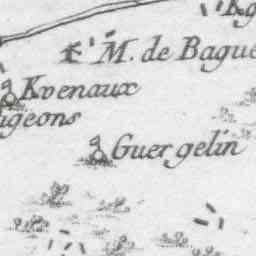 M. de Bague
Kvenaux
igeons
Guer gelin